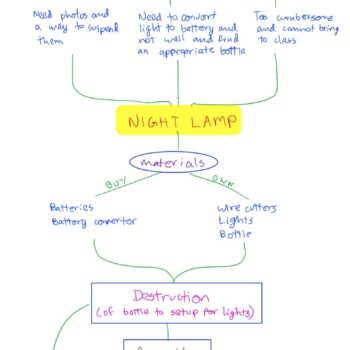 Need photos and
a way to suspend
them
Need to convert
light to battery and
not wall and find
an appropriate bottle
Too cumbersome
and cannot bring
to class
NIGHT LAMP
materials
BUY
OWN
Batteries
Battery converter
Wire cutters
Lights
Bottle
Destruction
(of bottle to setup for lights)